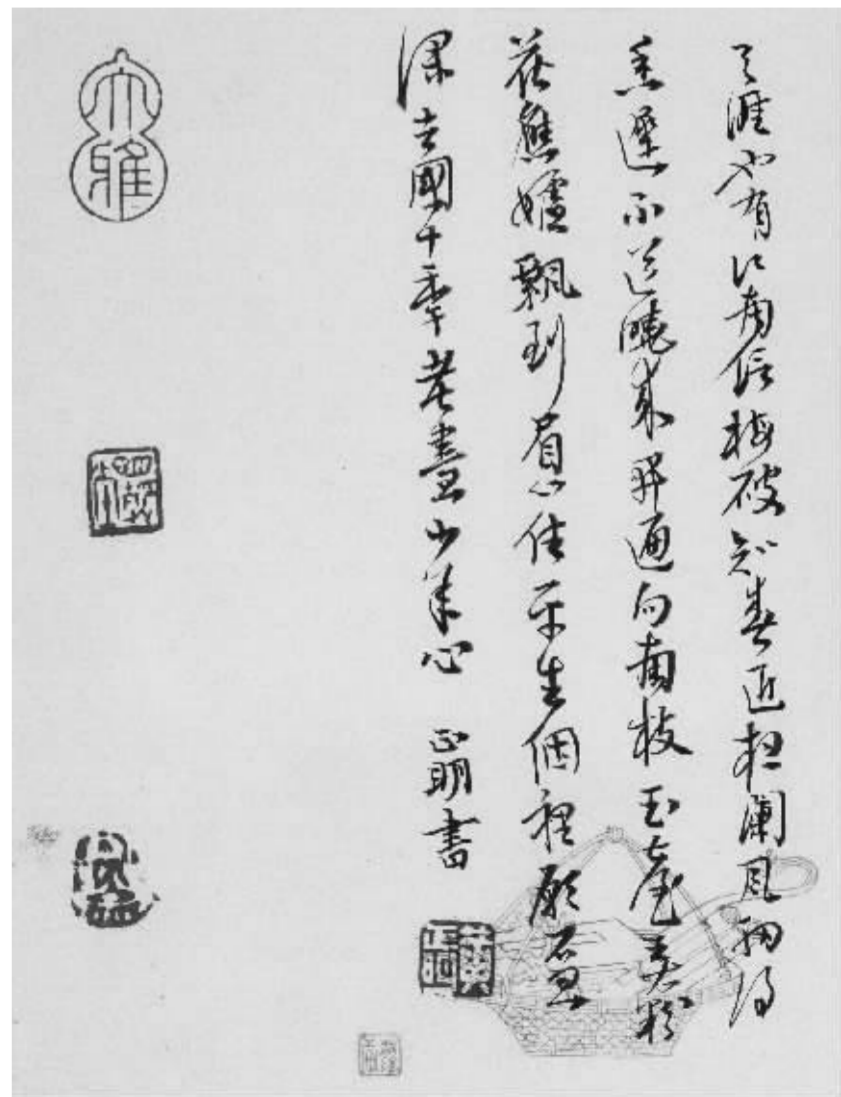 天涯也有江南信梅破知春近夜闌風細得
香遲不道曉來開遍向南枝玉臺弄粉
花應妒飄到眉心住平生個裡願盃
深去國十年老盡少年心 明書
大雅